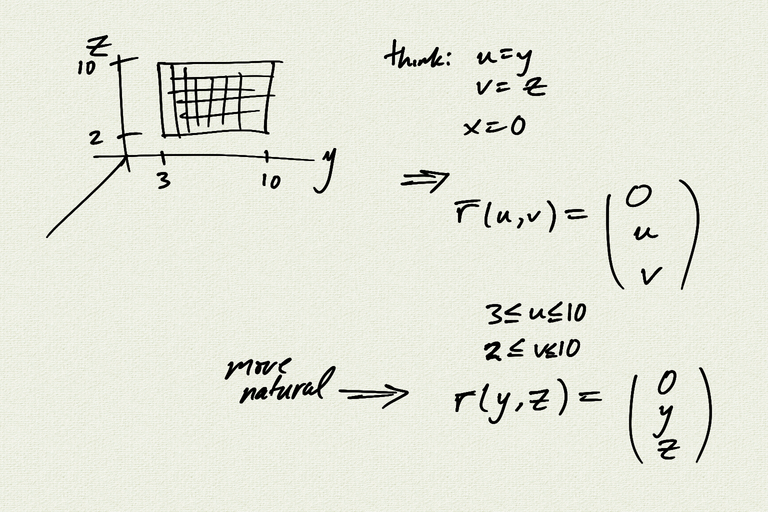 z
10
2
3 10 y
think: u=y
v=z
x=0
⇒
r̄(u,v) = (0
u
v)
3≤u≤10
2≤v≤10
more
natural ⇒ r(y,z) = (0
y
z)